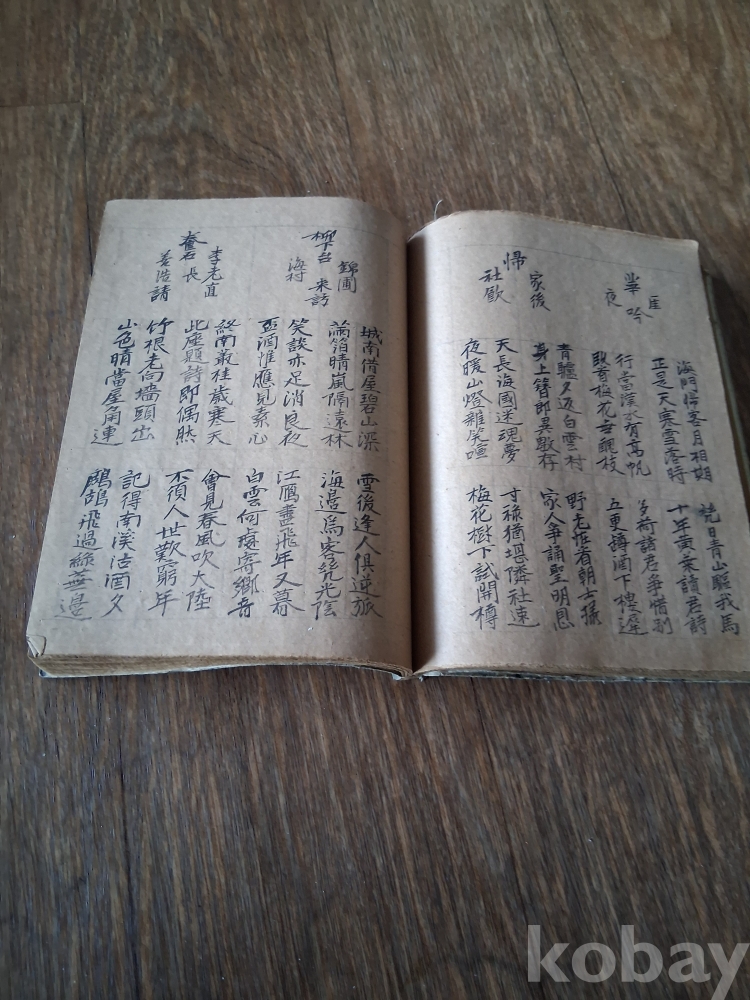 夜吟
海門悟客月相期
梵日青山驅我馬
正是天寒雪落時
十年黃葉讀君詩
行當漢水有高帆
多荷諸君爭惜別
數首梅花無醜枝
五更蹲酒下樓遲
歸家後
社飮
青驢夕返白雲村
野老惟看朝士樣
身上簪郎異數存
家人爭誦聖明恩
天長海國迷魂夢
寸祿猶堪隣社速
夜暖山燈雜笑喧
梅花樹下試開樽
錦圃
柳台來訪
海村
城南借屋碧山深
雪後逢人俱逆旅
滿箔晴嵐隔遠林
海邊爲客惜光陰
笑談亦足消良夜
江鴈盡飛年又暮
盃酒惟應見素心
白雲何處寄鄉音
李老直
養石長
善浩請
終南叢桂歲寒天
會見春風吹大陸
此座題詩即偶然
不須人世歎窮年
竹根老向墻頭出
記得南溪沽酒夕
山色晴當屋角連
鷓鴣飛過綠蕪邊
kobay